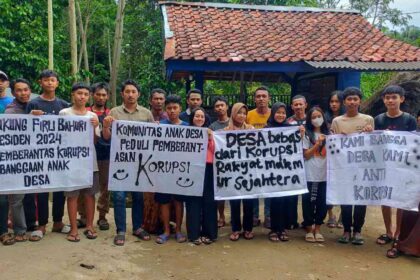 KUNG FIRLI BAHURI
SIDEN 2024
EMBERANTAS KORUPSI
BANGGAAN ANAK
DESA
KOMUNITAS ANAK DESA
PEDULI PEMBERANT-
ASAN
KORUPSI
DESA bebas
dari KORUPSI
Rakyat makm
ur Sejahtera
KAMI BANGGA
DESA KAMI
ANTI
KORUPSI